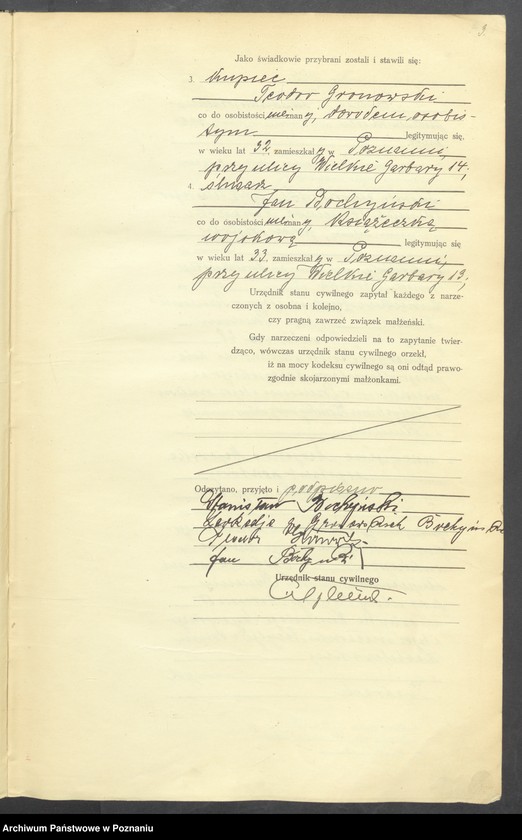 3.
Jako świadkowie przybrani zostali i stawili się:
3. kupiec
Teodor Gronowski
co do osobistości, nieznany, dowodem osobis-
tym legitymując się,
w wieku lat 32, zamieszkały w Poznaniu,
przy ulicy Wielkie Garbary 14;
4. ślusarz
Jan Bochyński
co do osobistości, nieznany, książeczką
wojskową legitymując się
w wieku lat 33, zamieszkały w Poznaniu,
przy ulicy Wielkie Garbary 19,
Urzędnik stanu cywilnego zapytał każdego z narze-
czonych z osobna i kolejno,
czy pragną zawrzeć związek małżeński.
Gdy narzeczeni odpowiedzieli na to zapytanie twier-
dząco, wówczas urzędnik stanu cywilnego orzekł,
iż na mocy kodeksu cywilnego są oni odtąd prawo-
zgodnie skojarzonymi małżonkami.
Odczytano, przyjęto i podpisano
Stanisław Bochyński
Jan
Urzędnik stanu cywilnego
Archiwum Państwowe w Poznaniu